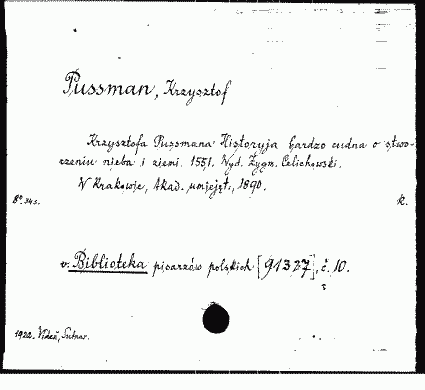 Pussman, Krzysztof
Krzysztofa Pussmana Historyja bardzo cudna o stwo-
rzeniu nieba i ziemi. 1551. Wyd. Zygm. Celichowski.
W Krakowie, Akad. umiejęt., 1890.
8°. 34 s. k.
v. Biblioteka pisarzów polskich [91337], č. 10.
1922. Videň, Sutnar.